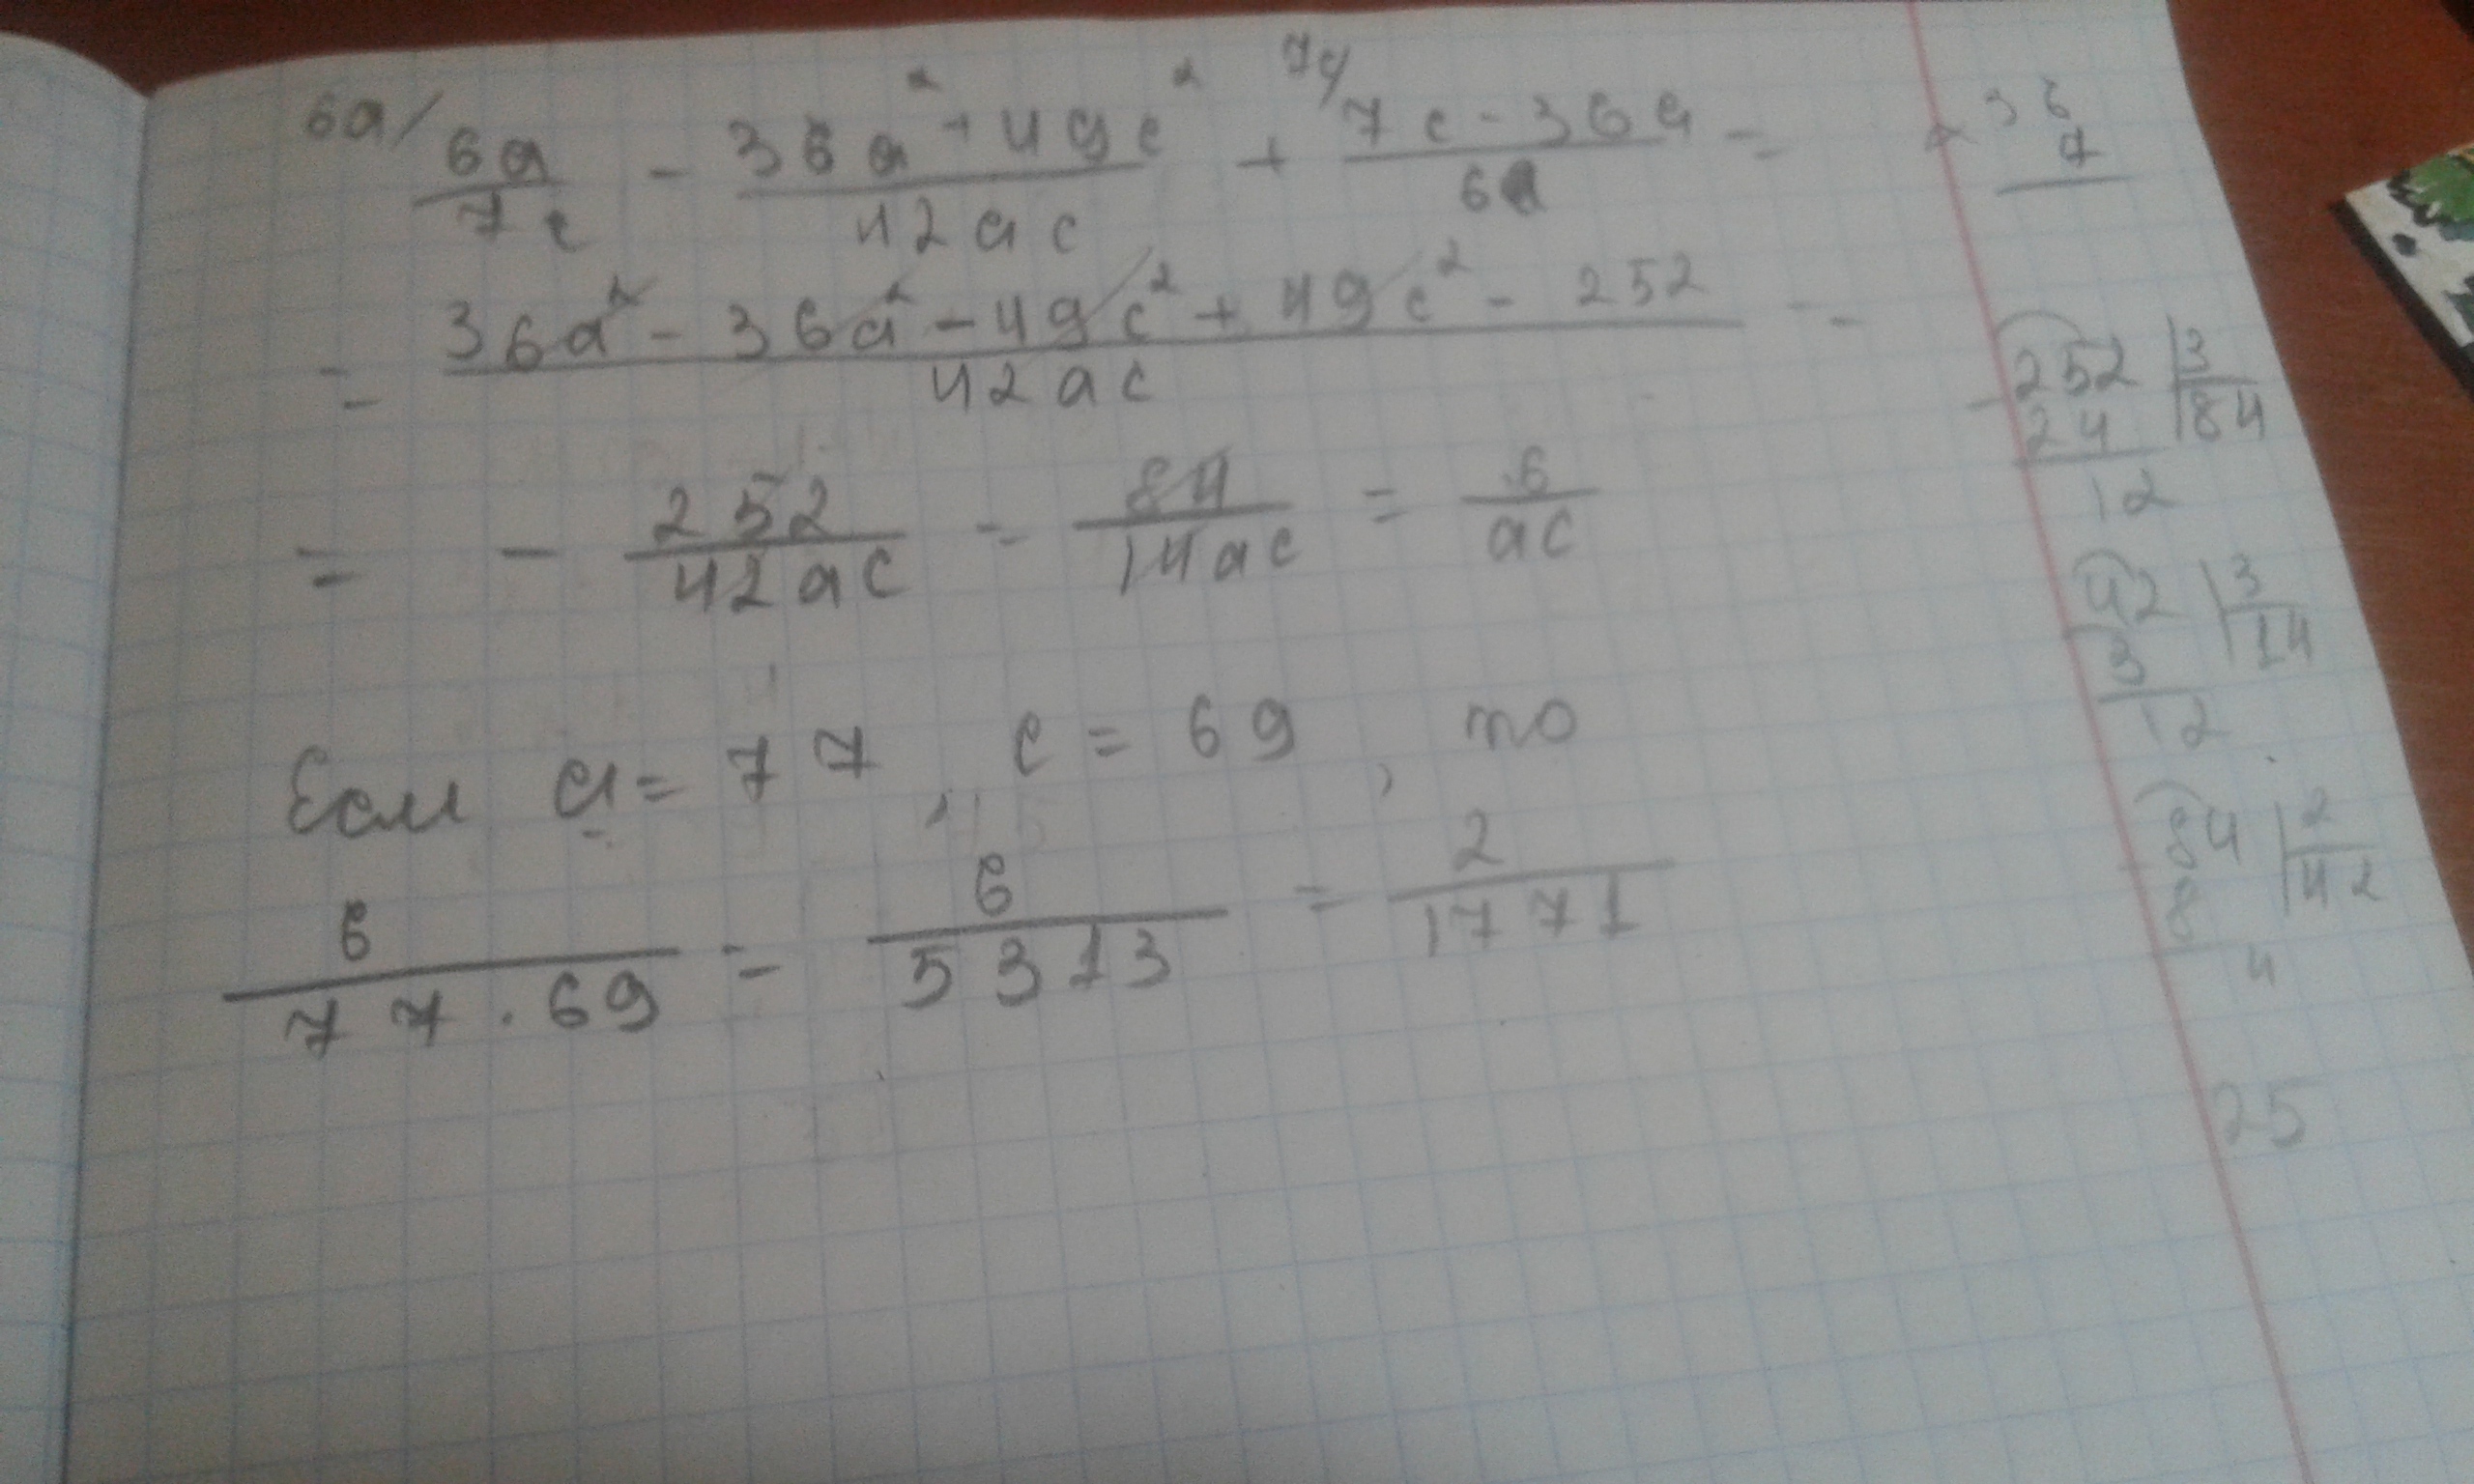 6a/ 6a/7c - 36a² + 49c²/42ac + 7c/ 7c - 36a/6a =
= 36a² - 36a² - 49c² + 49c² - 252/42ac =
= - 252/42ac = 84/14ac = 6/ac
Если a = 77, c = 69, то
6/77 · 69 = 6/5313 = 2/1771
× 36
7
- 252 | 3
24 | 84
12
42 | 3
3 | 14
12
84 | 2
8 | 42
4
25